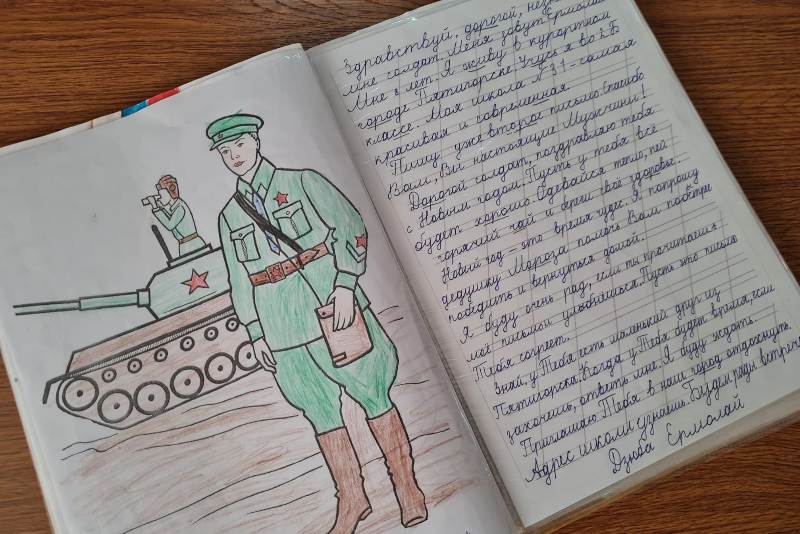 Здравствуй, дорогой,
мне солдат. Меня зовут Ермолай
Мне 8 лет. Я живу в курортном
городе Пятигорске. Учусь я во 2 Б
классе. Моя школа № 31 - самая
красивая и современная.
Пишу уже второе письмо. Спасибо
Вам, Вы настоящие Мужчины!
Дорогой солдат, поздравляю тебя
с Новым годом. Пусть у тебя всё
будет хорошо. Одевайся тепло, пей
горячий чай и береги своё здоровье.
Новый год - это время чудес. Я попрошу
дедушку Мороза помочь Вам быстрее
победить и вернуться домой.
Я буду очень рад, если ты прочитаешь
моё письмо и улыбнёшься. Пусть это письмо
Тебя согреет.
Знай, у Тебя есть маленький друг из
Пятигорска. Когда у Тебя будет время, если
захочешь, ответь мне. Я буду ждать.
Приглашаю Тебя в наш город отдохнуть.
Адрес школы узнаешь. Будем рады встрече
Дзюба Ермолай